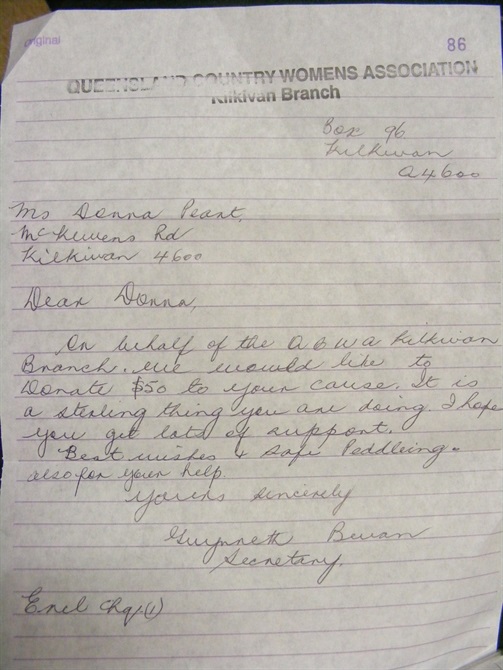 original
86
QUEENSLAND COUNTRY WOMENS ASSOCIATION
Kilkivan Branch
Box 96
Kilkivan
Q 4600
Ms Donna Peart,
McKewens Rd
Kilkivan 4600
Dear Donna,
On behalf of the Q C W A Kilkivan
Branch. we would like to
Donate $50 to your cause. It is
a sterling thing you are doing. I hope
you get lots of support.
Best wishes & safe Peddleing.
also for your help.
Yours sincerely
Gwynneth Bevan
Secretary.
Encl Chq (1)